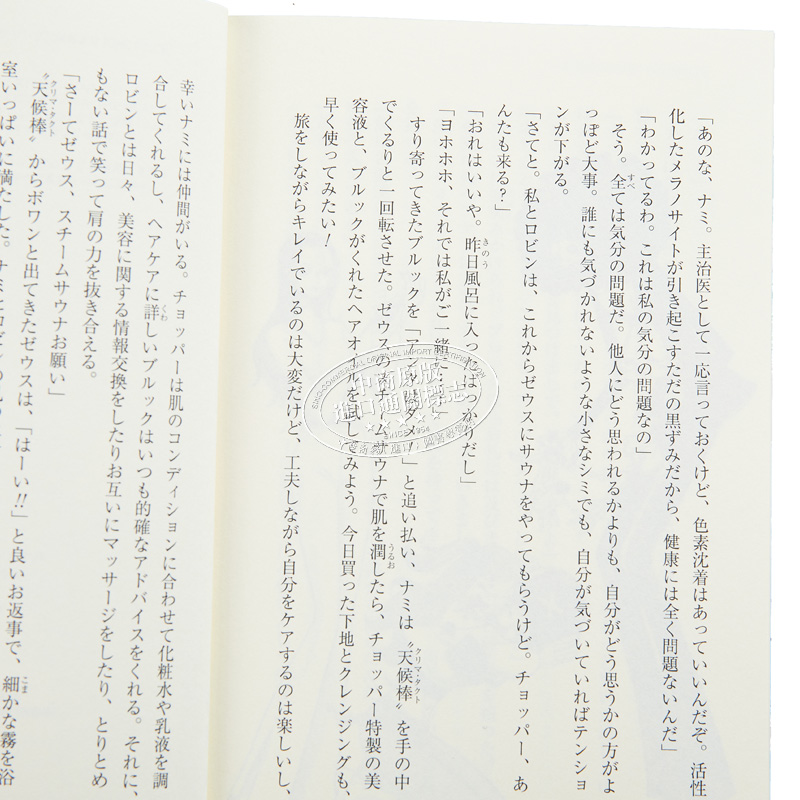 「あのな、ナミ。主治医として一応言っておくけど、色素沈着はあっていいんだぞ。活性
化したメラノサイトが引き起こすただの黒ずみだから、健康には全く問題ないんだ」
「わかってるわ。これは私の気分の問題なの」
そう。全ては気分の問題だ。他人にどう思われるかよりも、自分がどう思うかの方がよ
っぽど大事。誰にも気づかれないような小さなシミでも、自分が気づいていればテンショ
ンが下がる。
「さてと。私とロビンは、これからゼウスにサウナをやってもらうけど。チョッパー、あ
んたも来る?」
「おれはいいや。昨日風呂に入ったばっかりだし」
「ヨホホホ、それでは私がご一緒に
すり寄ってきたブルックを「アンタはダメ!」と追い払い、ナミは〝天候棒〟を手の中
でくるりと一回転させた。ゼウスのスチームサウナで肌を潤したら、チョッパー特製の美
容液と、ブルックがくれたヘアオイルを試してみよう。今日買った下地とクレンジングも、
早く使ってみたい!
旅をしながらキレイでいるのは大変だけど、工夫しながら自分をケアするのは楽しいし、
幸いナミには仲間がいる。チョッパーは肌のコンディションに合わせて化粧水や乳液を調
合してくれるし、ヘアケアに詳しいブルックはいつも的確なアドバイスをくれる。それに、
ロビンとは日々、美容に関する情報交換をしたりお互いにマッサージをしたり、とりとめ
もない話で笑って肩の力を抜き合える。
「さーてゼウス、スチームサウナお願い」
〝天候棒〟からボワンと出てきたゼウスは、「はーい!!」と良いお返事で、細かな霧を浴
室いっぱいに満たした。ナミとロビンの